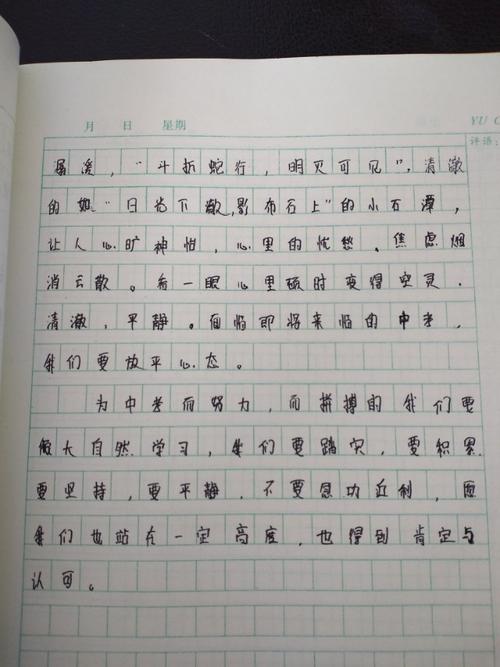 月 日 星期 YU
评语：
溪，“斗折蛇行，明灭可见”，清澈
的如“日光下澈，影布石上”的小石潭，
让人心旷神怡，心里的忧愁、焦虑烟
消云散。看一眼心里顿时变得空灵、
清澈，平静。面临即将来临的中考，
我们要放平心态。
为中考而努力，而拼搏的我们要
做大自然学习，我们要踏实，要积累，
要坚持，要平静，不要急功近利，愿
我们也站在一定高度，也得到肯定与
认可。